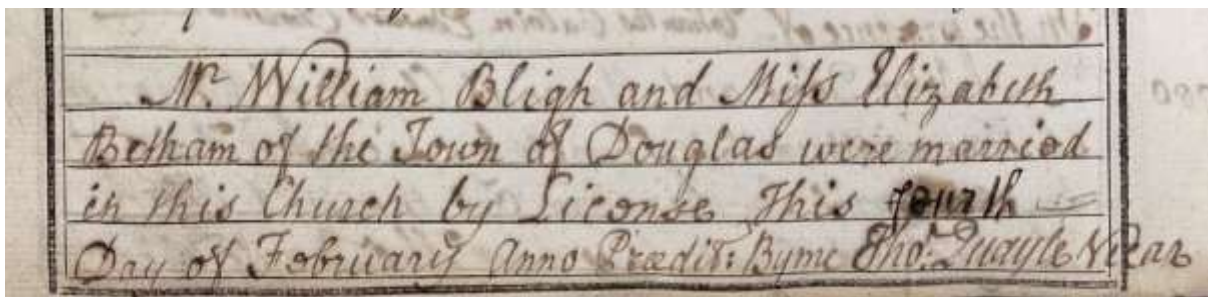 Mr. William Bligh and Miss Elizabeth
Betham of the Town of Douglas were married
in this Church by License this fourth
Day of February Anno Prædit: By me Tho: Quayle Vicar